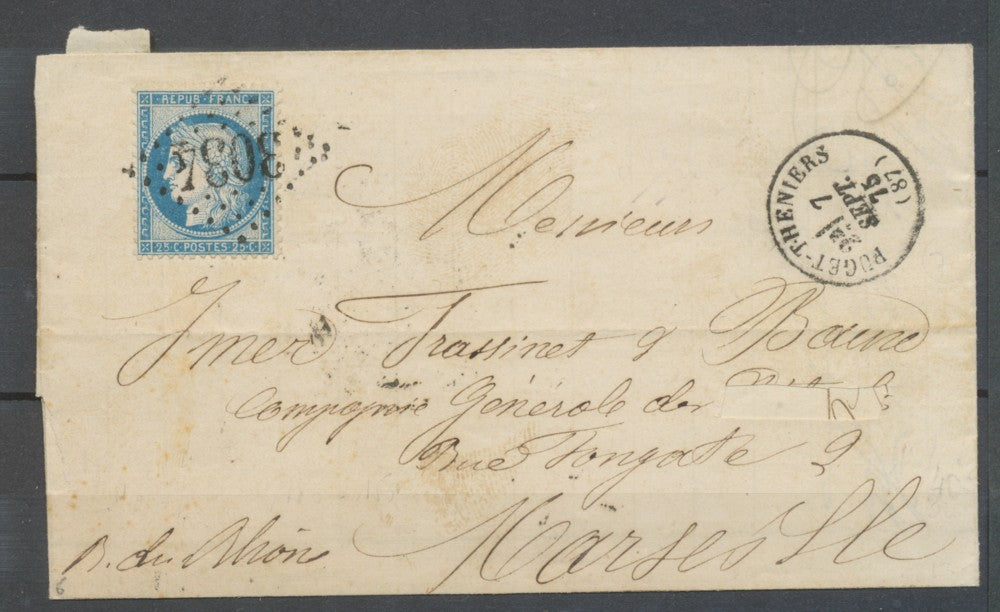 REPUB · FRANC
3034
25·C·POSTES·25·C
PUGET-THENIERS
2E/
7
SEPT.
75
(87)
Messieurs
Imer Fraissinet & Baux
Compagnie Générale des
Rue Fongate 9
Marseille
B. du Rhône